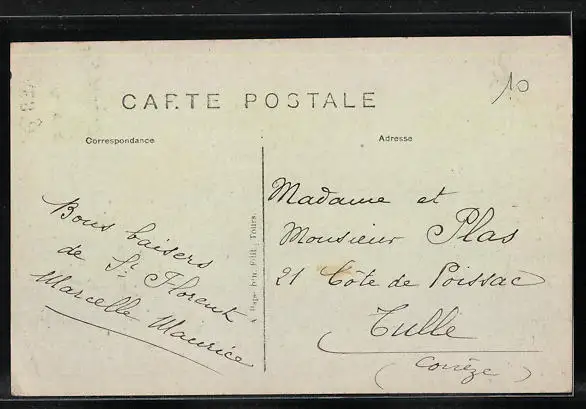 CARTE POSTALE
10
Correspondance
Adresse
Bons baisers
de St Florent
Marcelle Maurice
Édit., Tours.
Madame et
Monsieur Plas
21 Côte de Poissac
Tulle
(Corrèze)